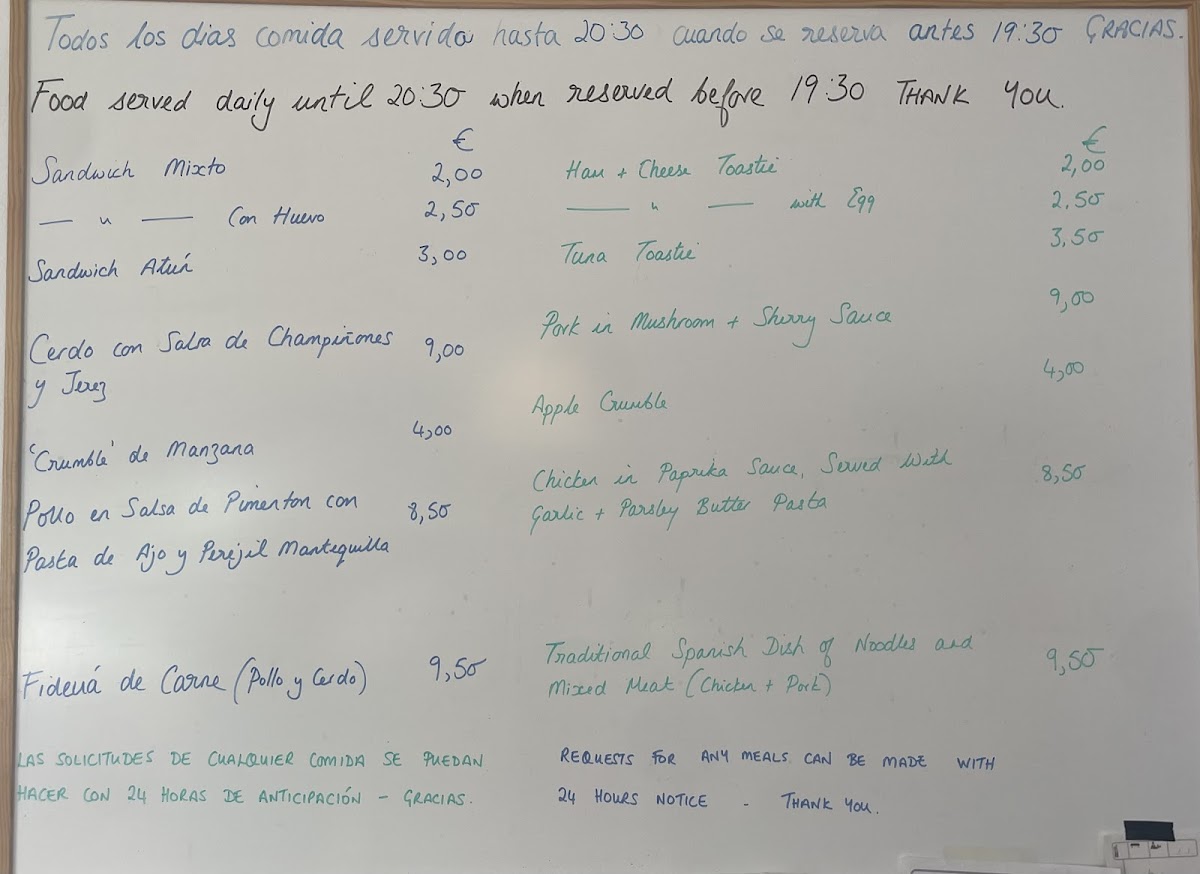 Todos los dias comida servida hasta 20:30 cuando se reserva antes 19:30 GRACIAS.
Food served daily until 20:30 when reserved before 19:30 THANK YOU.
€
Sandwich Mixto 2,00
— " — Con Huevo 2,50
Sandwich Atún 3,00
Cerdo con Salsa de Champiñones 9,00
y Jerez
'Crumble' de Manzana 4,00
Pollo en Salsa de Pimenton con 8,50
Pasta de Ajo y Perejil Mantequilla
Fideuá de Carne (Pollo y Cerdo) 9,50
LAS SOLICITUDES DE CUALQUIER COMIDA SE PUEDAN
HACER CON 24 HORAS DE ANTICIPACIÓN - GRACIAS.
€
Ham + Cheese Toastie 2,00
— " — with Egg 2.50
Tuna Toastie 3,50
Pork in Mushroom + Sherry Sauce 9,00
Apple Crumble 4,00
Chicken in Paprika Sauce, Served With 8,50
Garlic + Parsley Butter Pasta
Traditional Spanish Dish of Noodles and 9,50
Mixed Meat (Chicken + Pork)
REQUESTS FOR ANY MEALS CAN BE MADE WITH
24 HOURS NOTICE - THANK YOU.